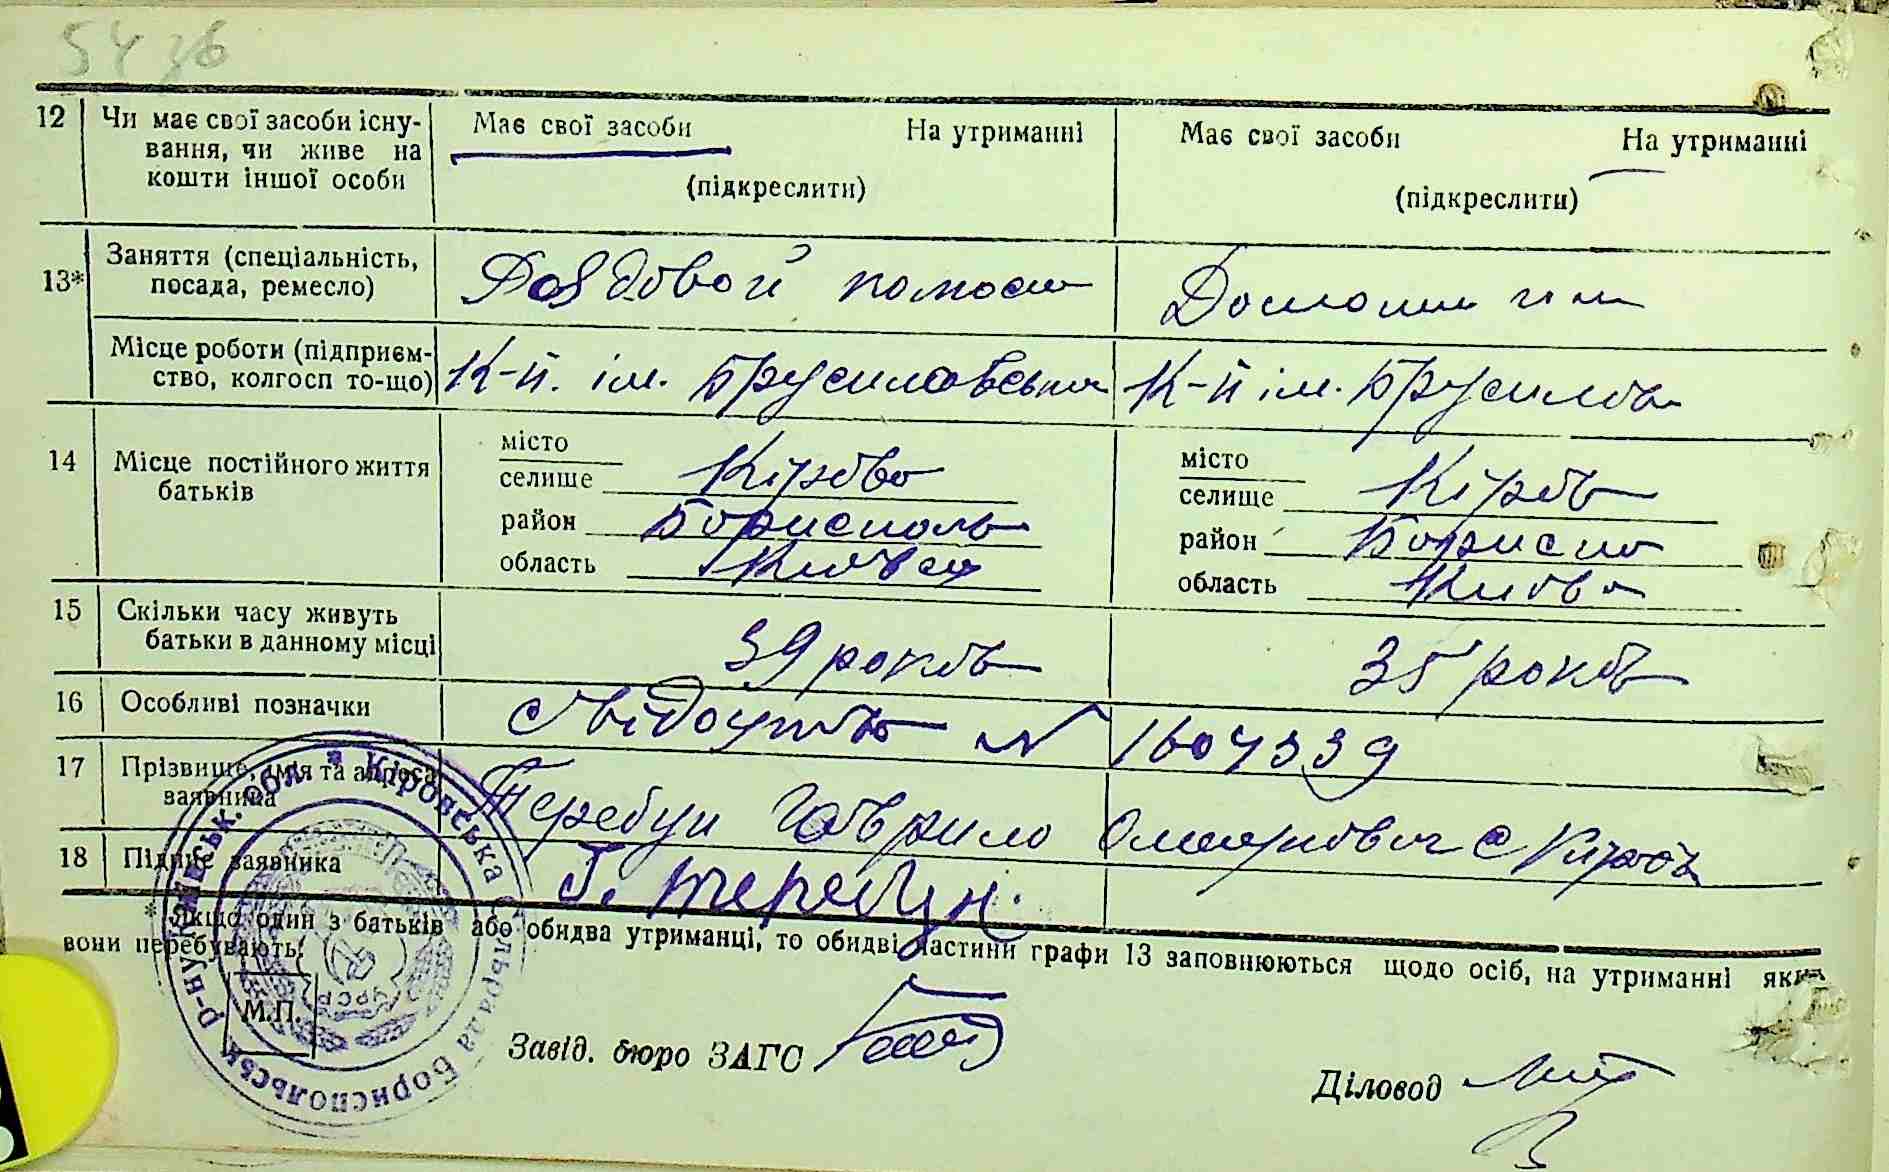 12 Чи має свої засоби існу-
вання, чи живе на
кошти іншої особи
Має свої засоби На утриманні
(підкреслити)
Має свої засоби На утриманні
(підкреслити)
13* Заняття (спеціальність,
посада, ремесло)
Місце роботи (підприєм-
ство, колгосп то-що)
К-п. ім.
К-п ім.
14 Місце постійного життя
батьків
місто
селище Кірово
район Бориспол
область Київск
місто
селище Кіров
район Борисп
область Київ
15 Скільки часу живуть
батьки в данному місці
39 років
35 років
16 Особливі позначки
Свідоцтво N 1607339
17 Прізвище, імія та адреса
заявника
Теребун Гаврило с Кіров
18 Підпис заявника
Г. Теребун.
* Якщо один з батьків або обидва утриманці, то обидві частини графи 13 заповнюються щодо осіб, на утриманні яких
вони перебувають.
М.П.
Завід. бюро ЗАГС
Діловод
Кіровська сільрада Бориспольськ р-ну Київськ. обл.
УРСР